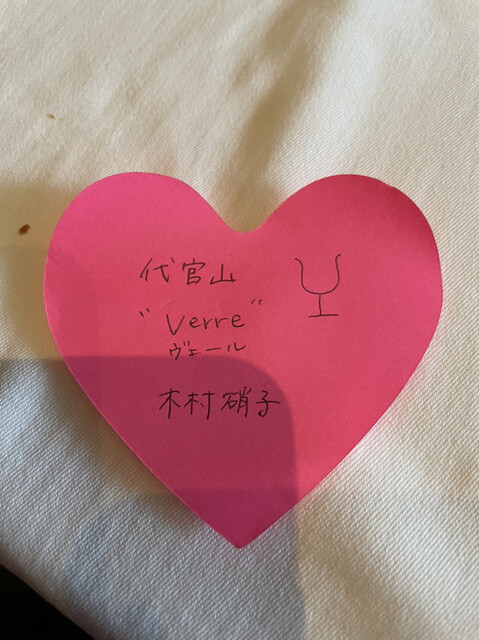 代官山
"Verre"
ヴェール
木村硝子